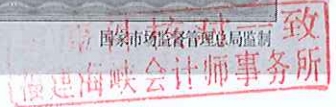 国家市场监督管理总局监制
致
福建海峡会计师事务所